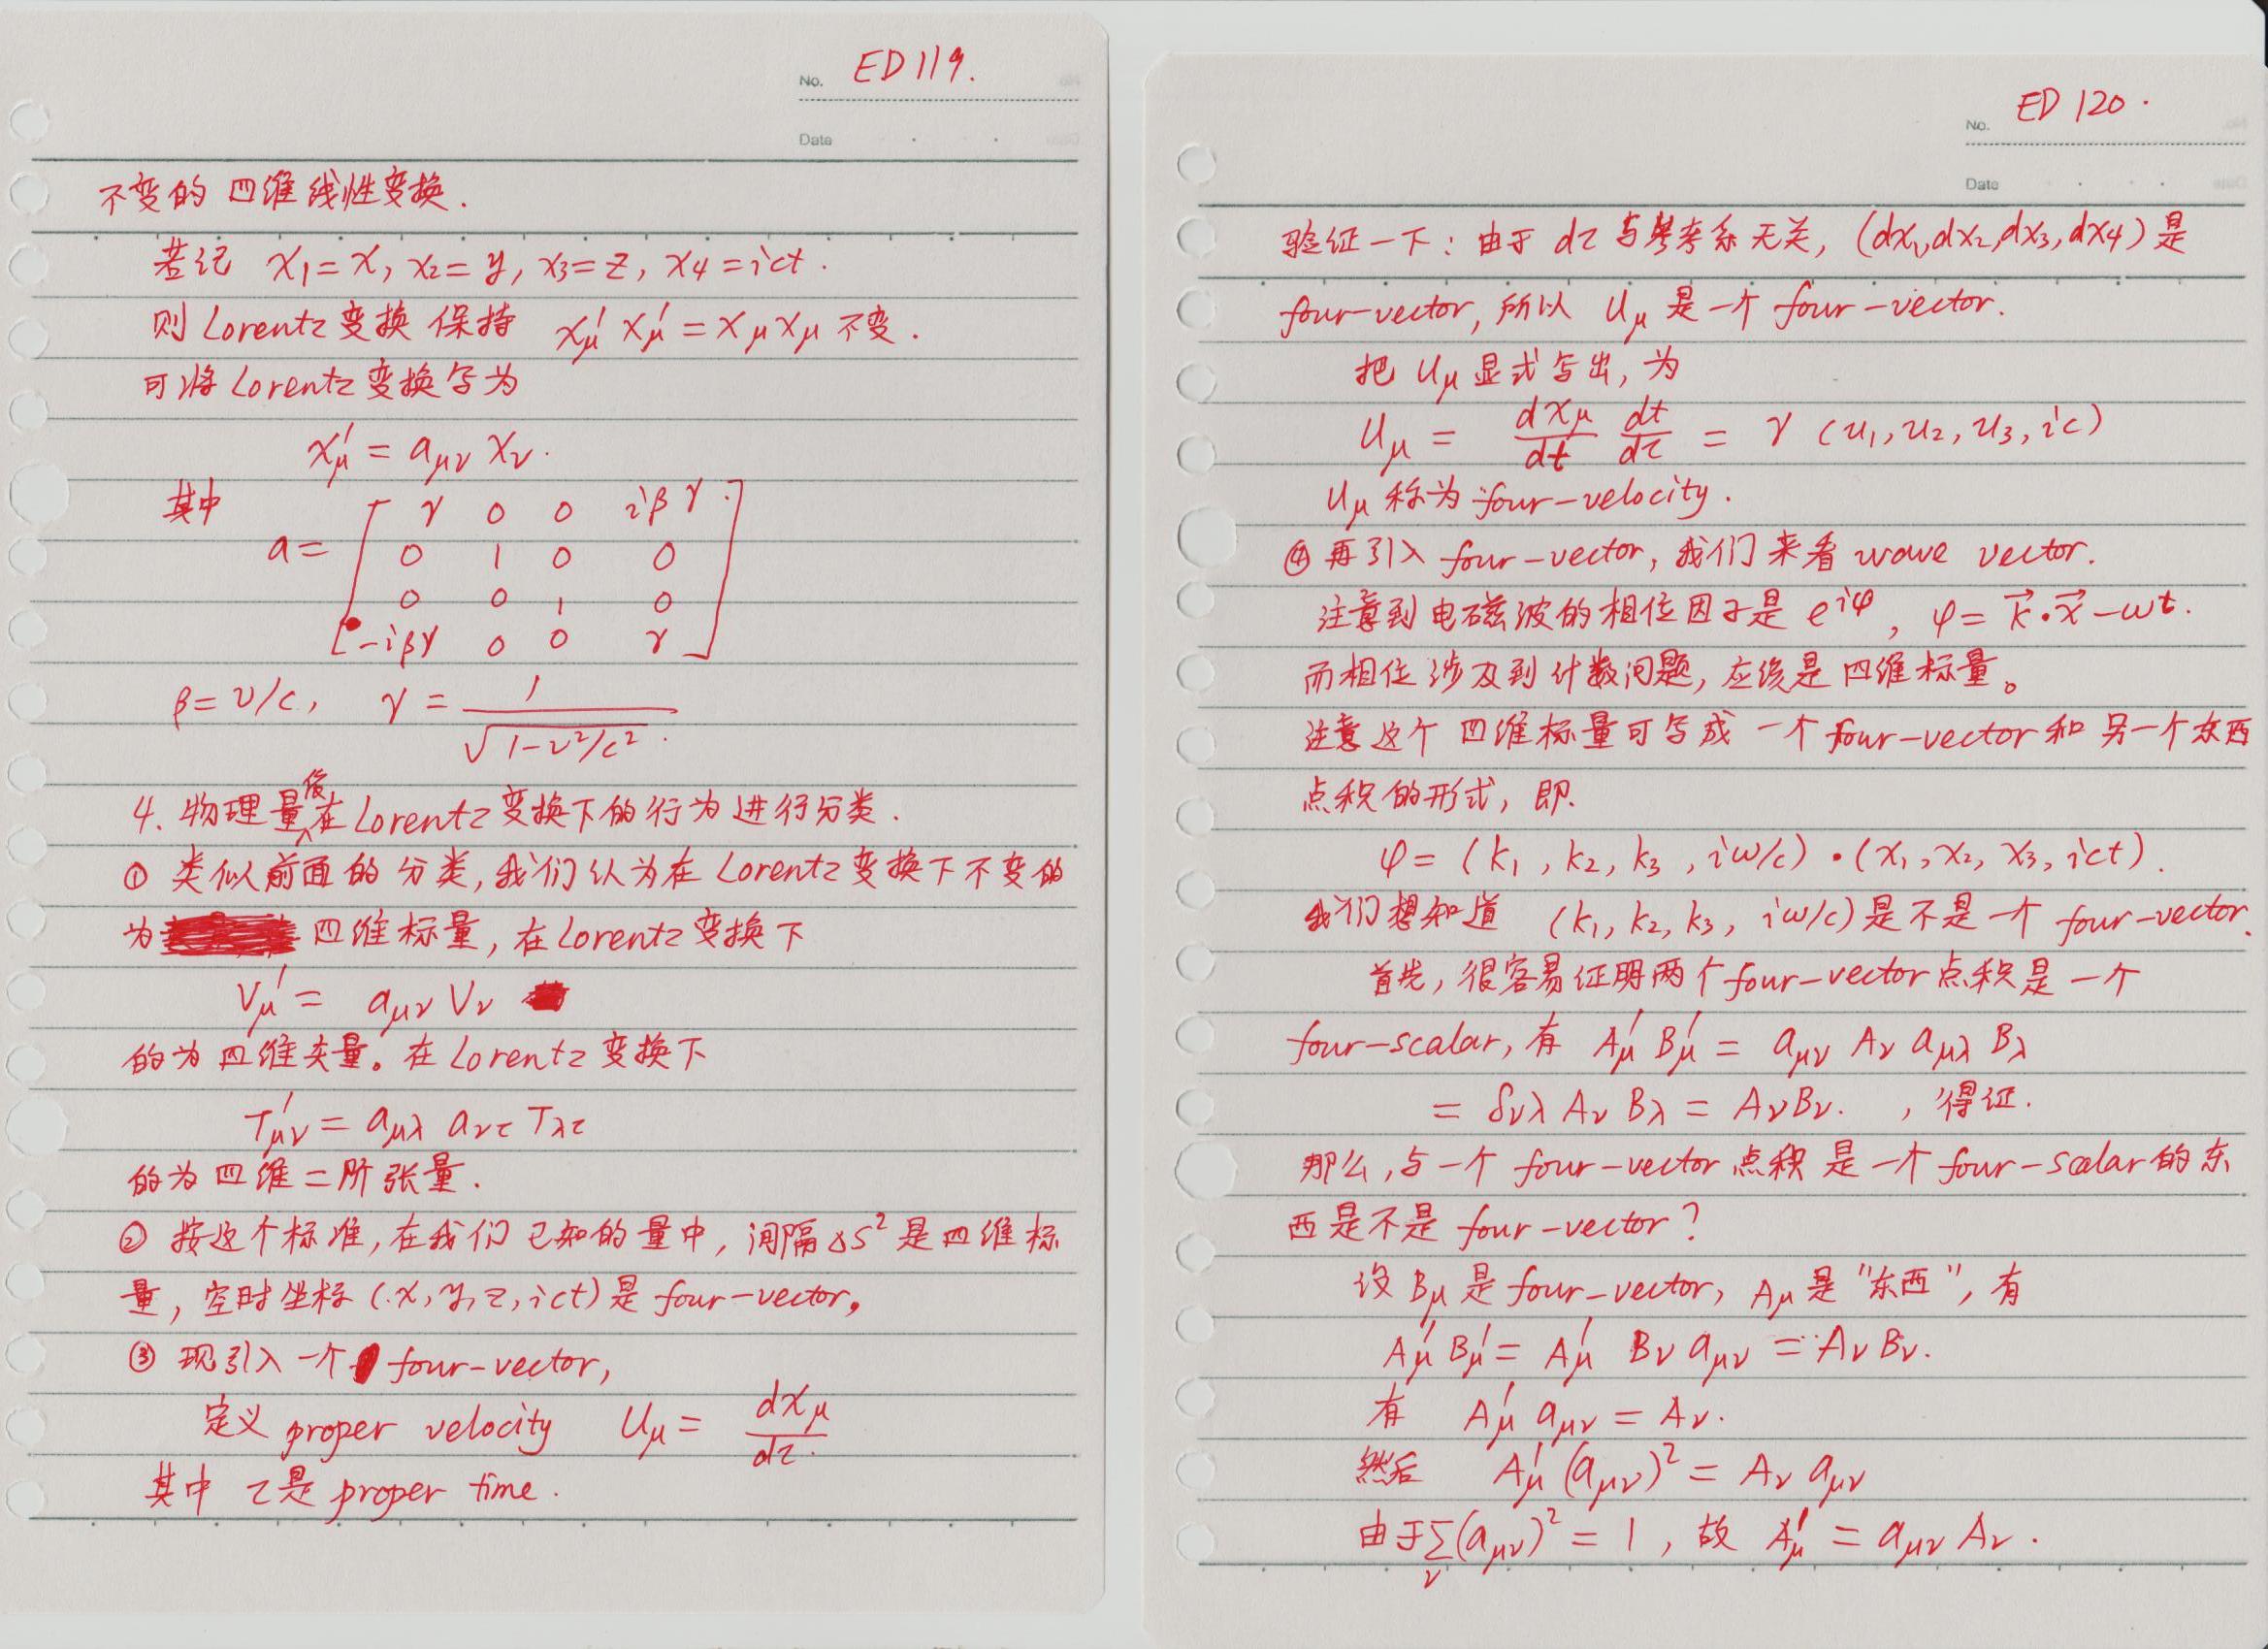 No. ED119.
Date
不变的 四维线性变换.
若记 x₁=x, x₂=y, x₃=z, x₄=ict.
则 Lorentz 变换 保持 x'_μ x'_μ = x_μ x_μ 不变.
可将 Lorentz 变换写为
x'_μ = a_μν x_ν.
其中
a = [ γ 0 0 iβγ
0 1 0 0
0 0 1 0
-iβγ 0 0 γ ]
β=v/c, γ = 1/√(1-v²/c²).
4. 物理量依在 Lorentz 变换下的行为进行分类.
① 类似前面的分类, 我们认为在 Lorentz 变换下不变的
为 四维标量, 在 Lorentz 变换下
V'_μ = a_μν V_ν
的为四维矢量。在 Lorentz 变换下
T'_μν = a_μλ a_ντ T_λτ
的为四维二阶张量.
② 按这个标准, 在我们已知的量中, 间隔 ΔS² 是四维标
量, 空时坐标 (x, y, z, ict) 是 four-vector。
③ 现引入一个 four-vector,
定义 proper velocity U_μ = dx_μ/dτ.
其中 τ是 proper time.
No. ED 120.
Date
验证一下: 由于 dτ 与参考系无关, (dx₁,dx₂,dx₃,dx₄) 是
four-vector, 所以 U_μ 是一个 four-vector.
把 U_μ 显式写出, 为
U_μ = dx_μ/dt dt/dτ = γ (u₁, u₂, u₃, ic)
U_μ 称为 four-velocity.
④ 再引入 four-vector, 我们来看 wave vector.
注意到电磁波的相位因子是 e^{iφ}, φ = k⃗·x⃗ - ωt.
而相位涉及到计数问题, 应该是四维标量。
注意这个四维标量可写成一个 four-vector 和另一个东西
点积的形式, 即.
φ = (k₁, k₂, k₃, iω/c)·(x₁, x₂, x₃, ict).
我们想知道 (k₁, k₂, k₃, iω/c) 是不是一个 four-vector.
首先, 很容易证明两个 four-vector 点积是一个
four-scalar, 有 A'_μ B'_μ = a_μν A_ν a_μλ B_λ
= δ_νλ A_ν B_λ = A_ν B_ν. , 得证.
那么, 与一个 four-vector 点积是一个 four-scalar 的东
西是不是 four-vector?
设 B_μ 是 four-vector, A_μ 是 "东西", 有
A'_μ B'_μ = A'_μ B_ν a_μν = A_ν B_ν.
有 A'_μ a_μν = A_ν.
然后 A'_μ (a_μν)² = A_ν a_μν
由于 Σ_ν (a_μν)² = 1, 故 A'_μ = a_μν A_ν.